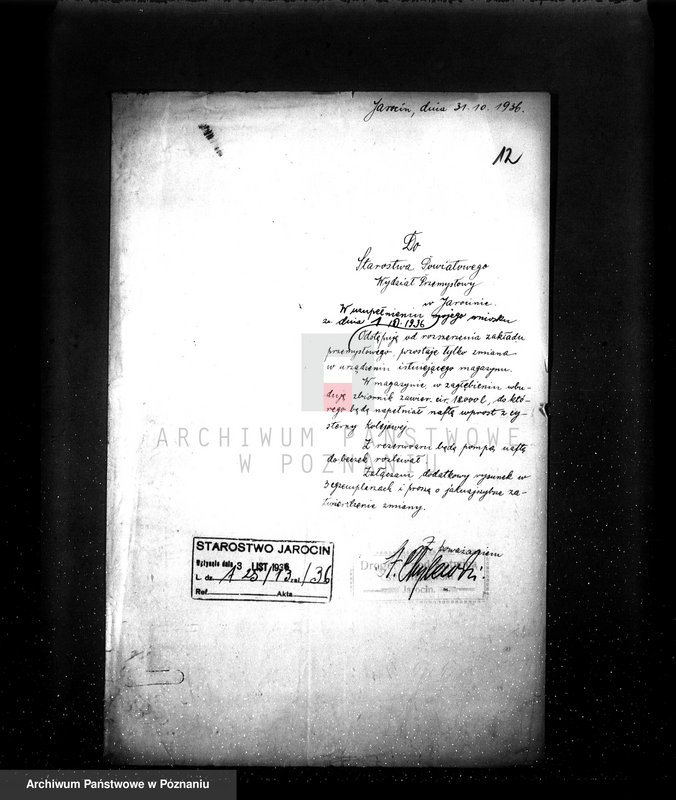 Jarocin, dnia 31. 10. 1936.
12
Do
Starostwa Powiatowego
Wydział Przemysłowy
w Jarocinie.
W uzupełnieniu mojego wniosku
ze dnia 1 10. 1936
Odstępuję od rozszerzenia zakładu
przemysłowego, pozostaje tylko zmiana
w urządzeniu istniejącego magazynu.
W magazynie w zagłębieniu wbu-
duję zbiornik zawier. cir. 18000 l, do któ-
rego będę napełniać naftę wprost z cy-
sterny kolejowej.
Z rezerwoaru będę pompą naftę
do beczek rozlewał.
Załączam dodatkowy rysunek w
3 egzemplarzach i proszę o jaknajrychle za-
twierdzenie zmiany.
Z poważaniem
Jarocin.
STAROSTWO JAROCIN
Wpłynęło dnia 3 LIST 1936
L. dz. 123/13 zał. /36
Ref. Akta
ARCHIWUM PAŃSTWOWE
W POZNANIU
Archiwum Państwowe w Poznaniu